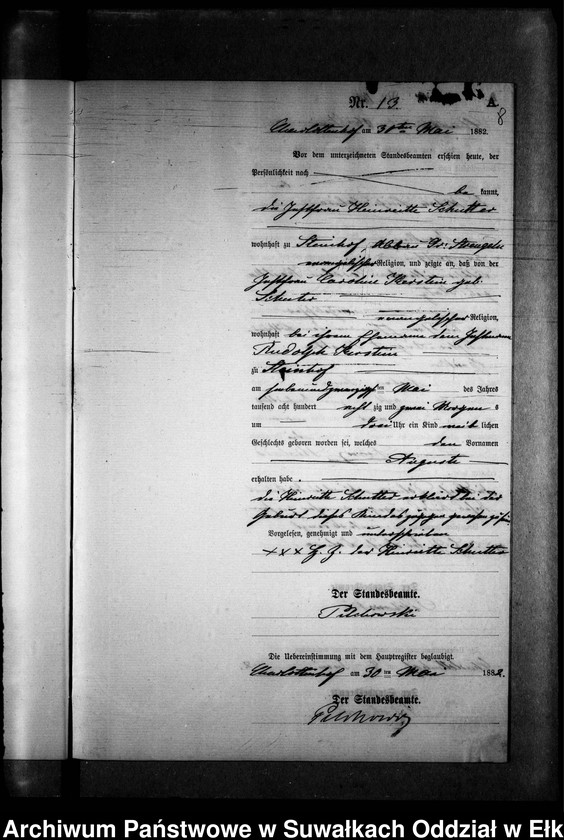 Nr. 13.
A.
8
Charlottenhof am 30ten Mai 1882.
Vor dem unterzeichneten Standesbeamten erschien heute, der
Persönlichkeit nach
be kannt,
die Instfrau Heinriette Schutter
wohnhaft zu Steinhof,
evangelischer Religion, und zeigte an, daß von der
Instfrau Caroline Kerstein geb.
evangelischer Religion,
wohnhaft bei ihrem Ehemanne dem Instmann
Rudolph Kerstein
zu Steinhof
am siebenundzwanzigsten Mai des Jahres
tausend acht hundert acht zig und zwei Morgens
um drei Uhr ein Kind weib lichen
Geschlechts geboren worden sei, welches den Vornamen
Auguste
erhalten habe.
die Heinriette Schutter erklärt bei der
Geburt dieses Kindes zugegen gewesen
Vorgelesen, genehmigt und unterschrieben
+++ H. Z. der Henriette Schutter
Der Standesbeamte.
Pelchowski
Die Uebereinstimmung mit dem Hauptregister beglaubigt.
Charlottenhof am 30 ten Mai 1882.
Der Standesbeamte.
Archiwum Państwowe w Suwałkach Oddział w Ełk